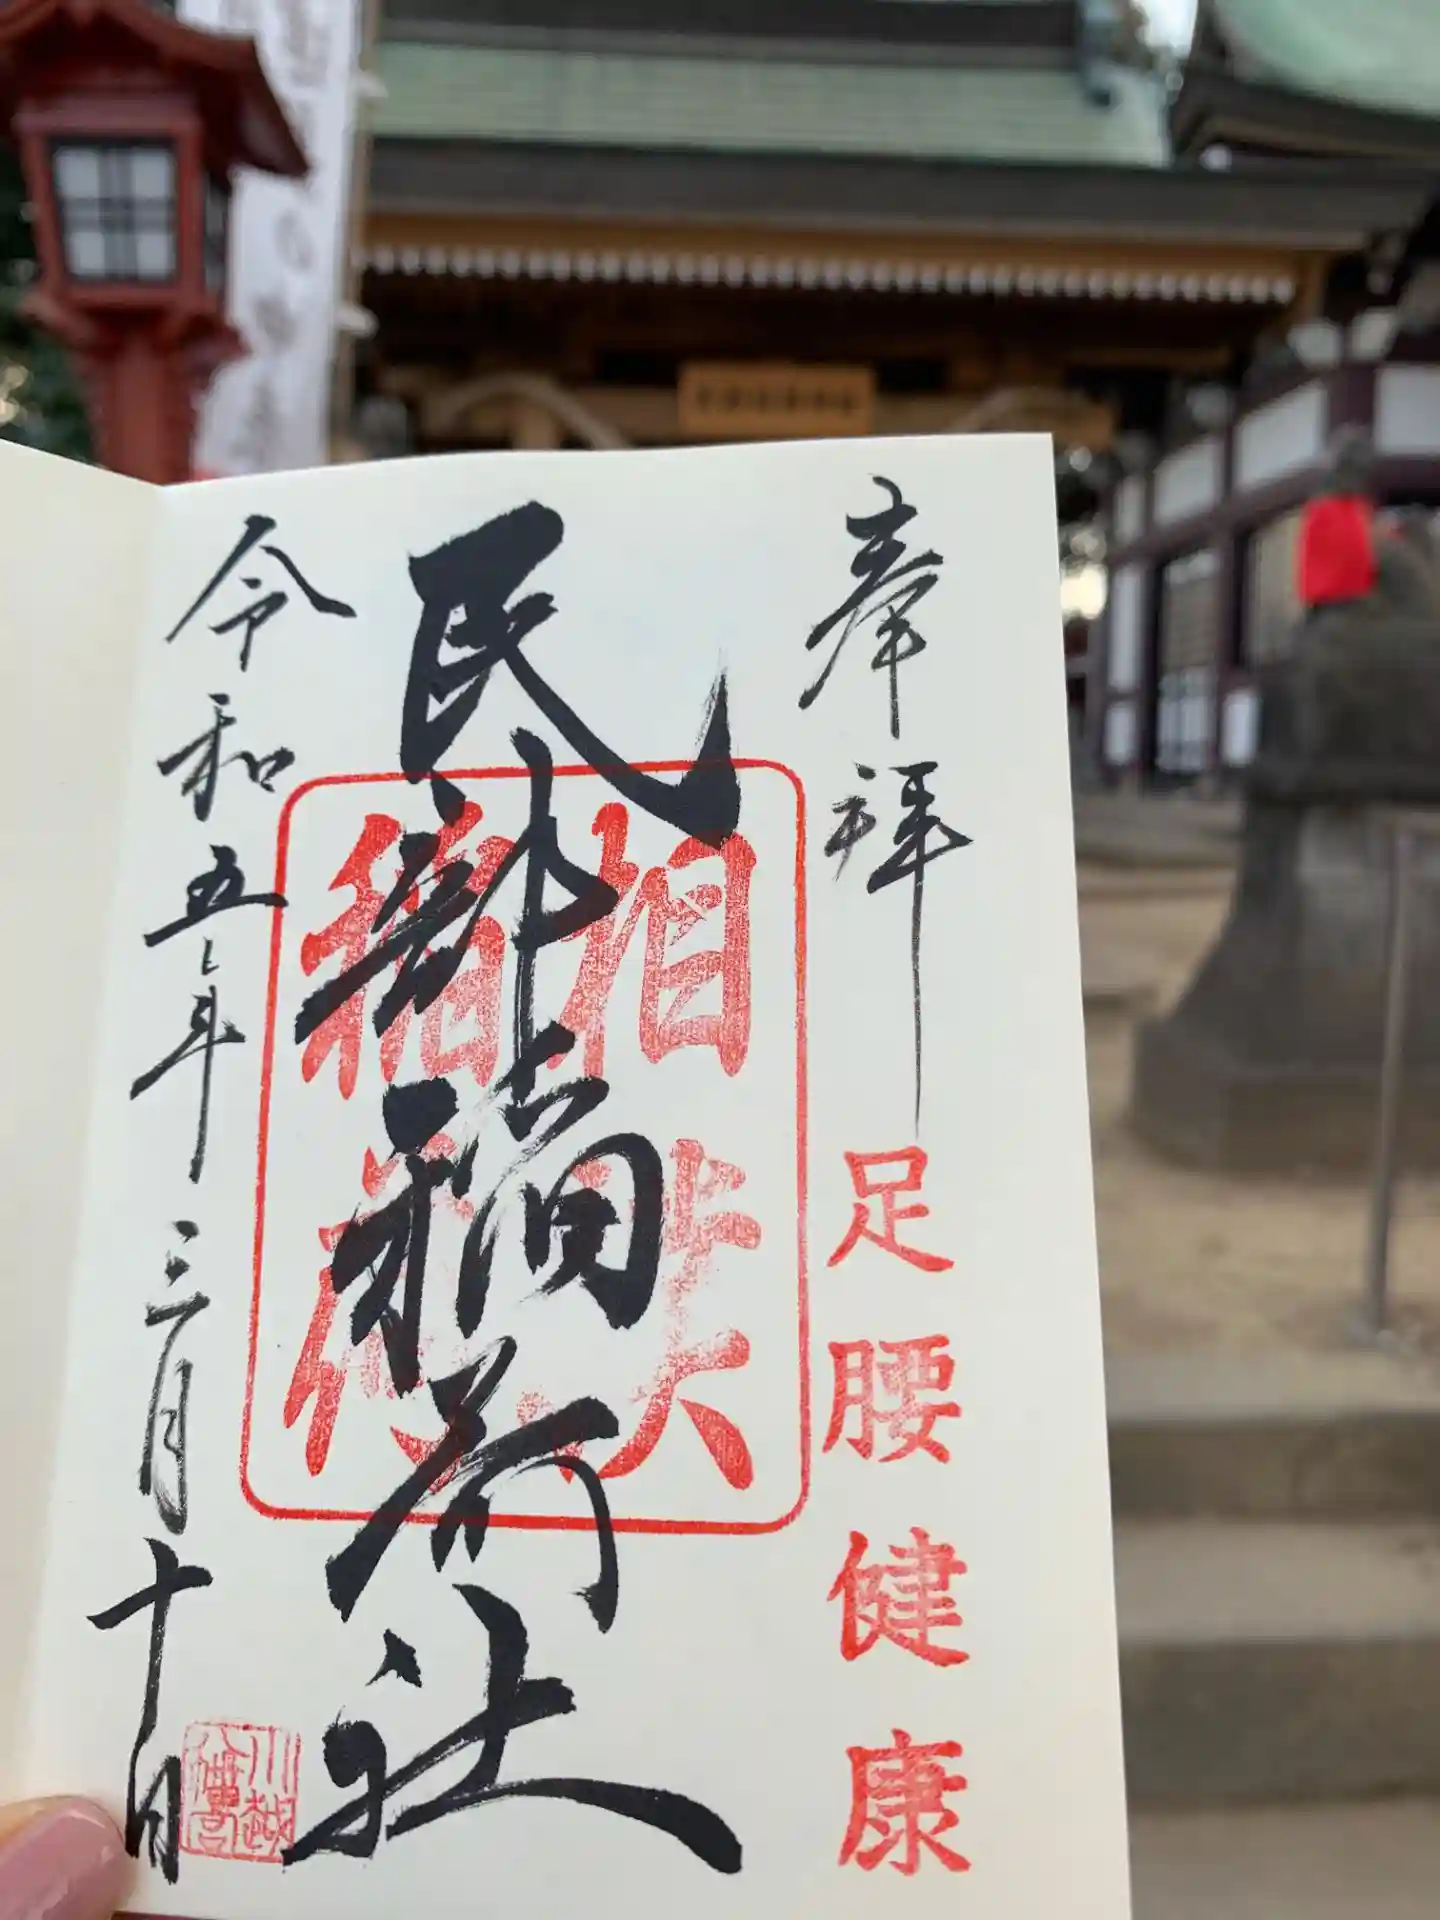 奉拝
足腰健康
民部稲荷社
相撲
稲荷
令和五年三月十日
川越
八幡宮